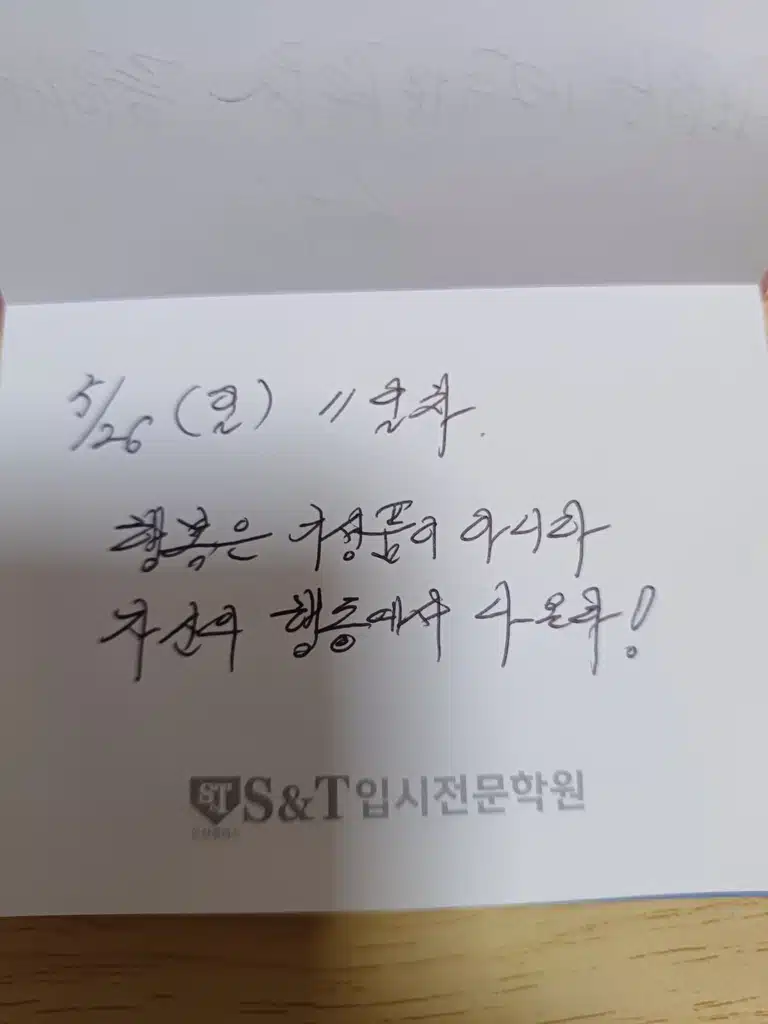 5/26 (일) 11일차.
행복은 기성품이 아니라
자신의 행동에서 나온다!
S&T입시전문학원